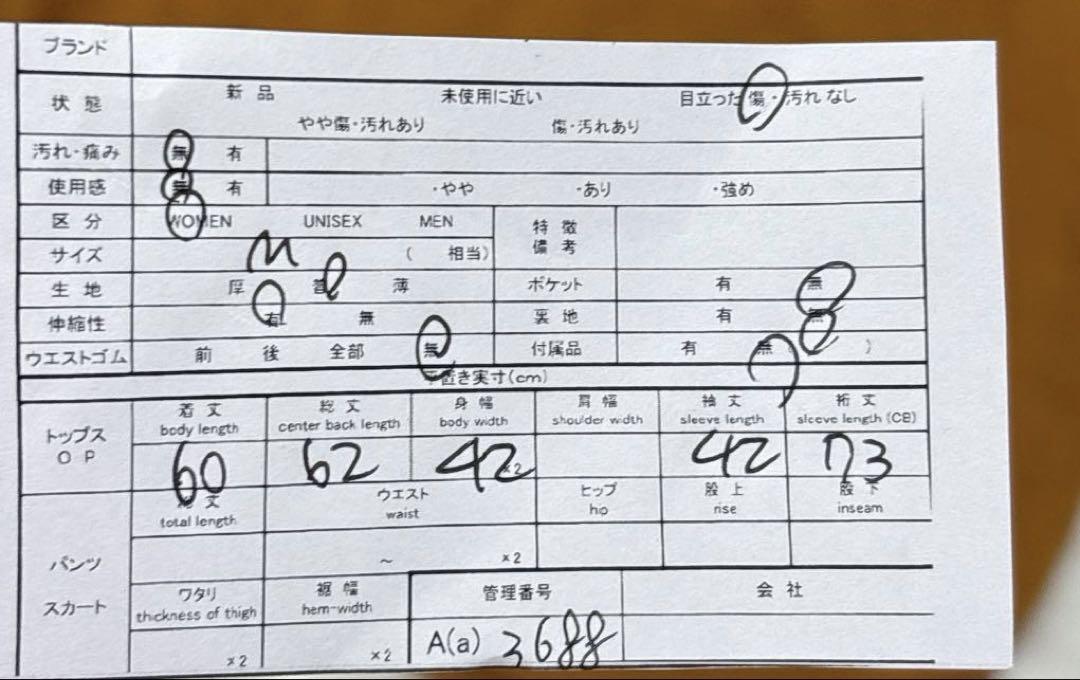 ブランド
状態 新品 未使用に近い 目立った傷・汚れなし
やや傷・汚れあり 傷・汚れあり
汚れ・痛み 無 有
使用感 無 有 ・やや ・あり ・強め
区分 WOMEN UNISEX MEN 特徴
備考
サイズ M ( 相当)
生地 厚 普 薄 ポケット 有 無
伸縮性 有 無 裏地 有 無
ウエストゴム 前 後 全部 無 付属品 有 無 )
平置き実寸(cm)
トップス
OP
着丈 総丈 身幅 肩幅 袖丈 裄丈
body length center back length body width shoulder width sleeve length sleeve length (CB)
60 62 42 ×2 42 73
総丈 ウエスト ヒップ 股上 股下
total length waist hip rise inseam
パンツ ～ ×2
スカート
ワタリ 裾幅 管理番号 会社
thickness of thigh hem-width
×2 ×2 A(a) 3688